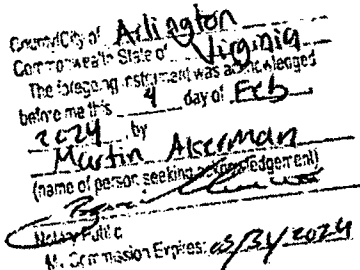 County/City of Arlington
Commonwealth/State of Virginia
The foregoing instrument was acknowledged
before me this 4 day of Feb
2024, by
Martin Akerman
(name of person seeking acknowledgement)
Notary Public
My Commission Expires: 03/31/2024